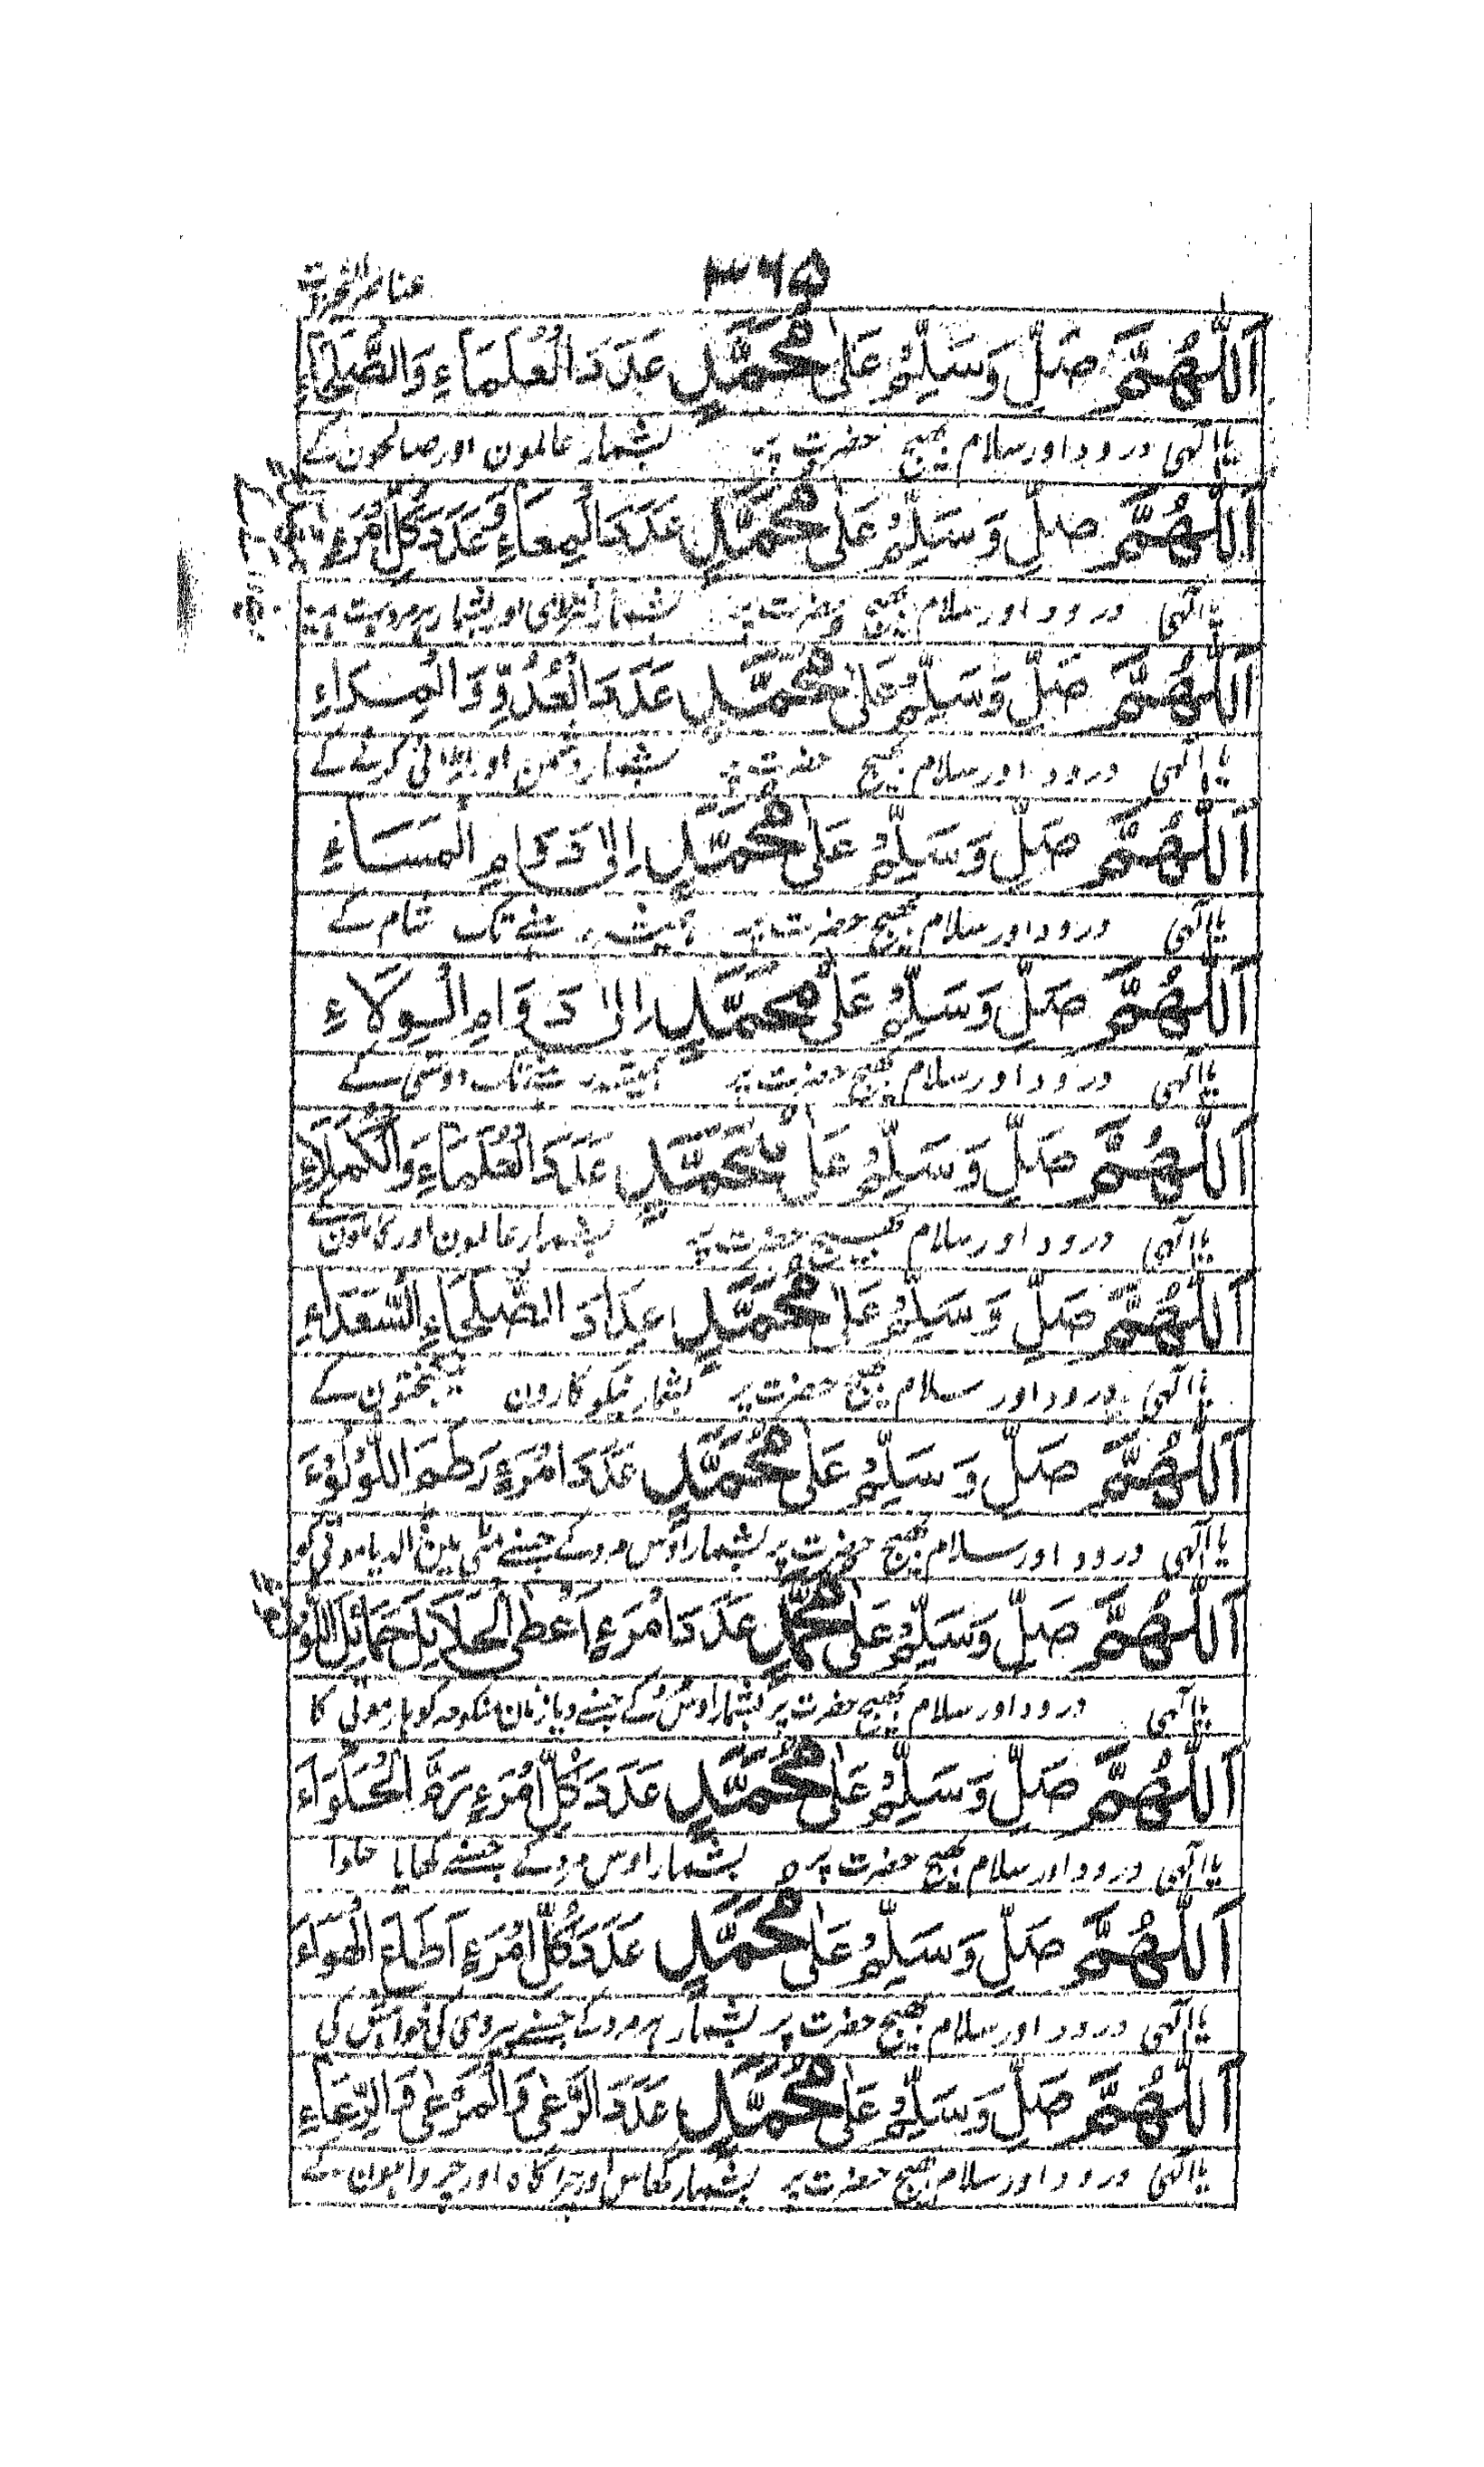 ۳۶۵
اَللّٰهُمَّ صَلِّ وَسَلِّمْ عَلٰی مُحَمَّدٍ عَدَدَ الْعُلَمَاءِ وَالصُّلَحَاءِ
یا الٰہی درود اور سلام بھیج حضرت پر بشمار عالمون اور صالحون کے
اَللّٰهُمَّ صَلِّ وَسَلِّمْ عَلٰی مُحَمَّدٍ عَدَدَ الْمِعَاءِ وَعَدَدَ كُلِّ امْرَءٍ
یا الٰہی درود اور سلام بھیج حضرت پر بشمار
اَللّٰهُمَّ صَلِّ وَسَلِّمْ عَلٰی مُحَمَّدٍ عَدَدَ الْعُدُوِّ وَالْمِسَدَاءِ
یا الٰہی درود اور سلام بھیج حضرت پر بشمار دشمن اور کرنے کے
اَللّٰهُمَّ صَلِّ وَسَلِّمْ عَلٰی مُحَمَّدٍ اِلٰی دَوَامِ الْمَسَاءِ
یا الٰہی درود اور سلام بھیج حضرت پر ہمیشہ رہنے تک شام کے
اَللّٰهُمَّ صَلِّ وَسَلِّمْ عَلٰی مُحَمَّدٍ اِلٰی دَوَامِ الْوِلَاءِ
یا الٰہی درود اور سلام بھیج حضرت پر ہمیشہ رہنے تک دوستی کے
اَللّٰهُمَّ صَلِّ وَسَلِّمْ عَلٰی مُحَمَّدٍ عَدَدَ الْعُلَمَاءِ وَالْكُمَلَاءِ
یا الٰہی درود اور سلام بھیج حضرت پر بشمار عالمون اور کاملون کے
اَللّٰهُمَّ صَلِّ وَسَلِّمْ عَلٰی مُحَمَّدٍ عَدَدَ الصُّلَحَاءِ السُّعَدَاءِ
یا الٰہی درود اور سلام بھیج حضرت پر بشمار نیکوکارون نیکبختون کے
اَللّٰهُمَّ صَلِّ وَسَلِّمْ عَلٰی مُحَمَّدٍ عَدَدَ امْرَءٍ رَطَمَ اللُّؤْلُؤَ
یا الٰہی درود اور سلام بھیج حضرت پر بشمار اوس مرد کے جسنے مٹی مین موتی کو
اَللّٰهُمَّ صَلِّ وَسَلِّمْ عَلٰی مُحَمَّدٍ عَدَدَ امْرَءٍ اَعْطَی الْحَلَائِلَ حَمَائِلَ اللُّؤْلُؤِ
یا الٰہی درود اور سلام بھیج حضرت پر بشمار اوس مرد کے جسنے دیا زنان منکوحہ کو ہار موتی کا
اَللّٰهُمَّ صَلِّ وَسَلِّمْ عَلٰی مُحَمَّدٍ عَدَدَ كُلِّ امْرَءٍ الْحُلْوَاءَ
یا الٰہی درود اور سلام بھیج حضرت پر بشمار اوس مرد کے جسنے کھایا حلوا
اَللّٰهُمَّ صَلِّ وَسَلِّمْ عَلٰی مُحَمَّدٍ عَدَدَ كُلِّ امْرَءٍ اَطَاعَ الْهَوَاءَ
یا الٰہی درود اور سلام بھیج حضرت پر بشمار ہر مرد کے جسنے پیروی کی خواہش کی
اَللّٰهُمَّ صَلِّ وَسَلِّمْ عَلٰی مُحَمَّدٍ عَدَدَ الرَّعْیِ وَالْمَرْعٰی وَالرِّعَاءِ
یا الٰہی درود اور سلام بھیج حضرت پر بشمار گھاس اور چراگاہ اور چرواہون کے